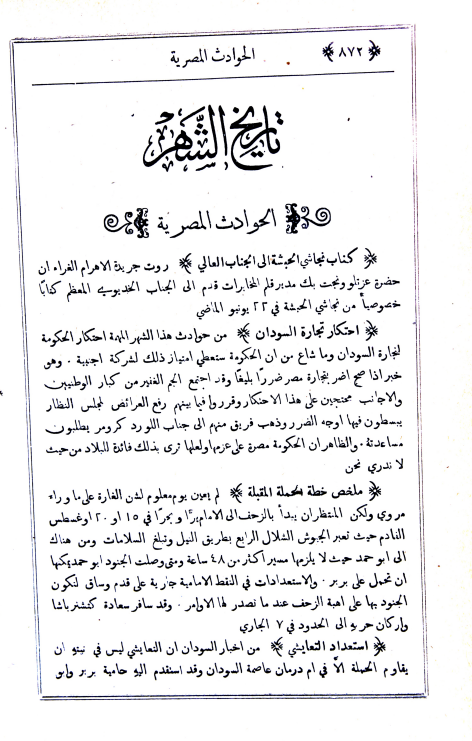 ٨٧٢ الحوادث المصرية
تاريخ الشهر
الحوادث المصرية
كتاب نجاشي الحبشة الى الجناب العالي روت جريدة الاهرام الغراء ان
حضرة عزتلو ونجت بك مدير قلم المخابرات قدم الى الجناب الخديوي المعظم كتابًا
خصوصيًا من نجاشي الحبشة في ٢٢ يونيو الماضي
احتكار تجارة السودان من حوادث هذا الشهر المهمة احتكار الحكومة
لتجارة السودان وما شاع من ان الحكومة ستعطي امتياز ذلك لشركة اجنبية . وهو
خبر اذا صح اضر بتجارة مصر ضررًا بليغًا وقد اجتمع الجم الغفير من كبار الوطنيين
والاجانب محتجين على هذا الاحتكار وقرروا فيما بينهم رفع العرائض لمجلس النظار
يبسطون فيها اوجه الضرر وذهب فريق منهم الى جناب اللورد كرومر يطلبون
مساعدته . والظاهر ان الحكومة مصرة على عزمها ولعلها ترى بذلك فائدة للبلاد من حيث
لا ندري نحن
ملخص خطة الحملة المقبلة لم يعين يوم معلوم لشن الغارة على ما وراء
مروي ولكن المنتظر ان يبدأ بالزحف الى الامام برًا وبحرًا في ١٥ او ٢٠ اوغسطس
القادم حيث تعبر الجيوش الشلال الرابع بطريق النيل وتبلغ السلامات ومن هناك
الى ابو حمد حيث لا يلزمها مسير اكثر من ٤٨ ساعة ومتى وصلت الجنود ابو حمد يمكنها
ان تحمل على بربر . والاستعدادات في النقط الامامية جارية على قدم وساق لتكون
الجنود بها على اهبة الزحف عند ما تصدر لها الاوامر . وقد سافر سعادة كتشنر باشا
واركان حربه الى الحدود في ٧ الجاري
استعداد التعايشي من اخبار السودان ان التعايشي ليس في نيته ان
يقاوم الحملة الاّ في ام درمان عاصمة السودان وقد استقدم اليه حامية بربر وابو